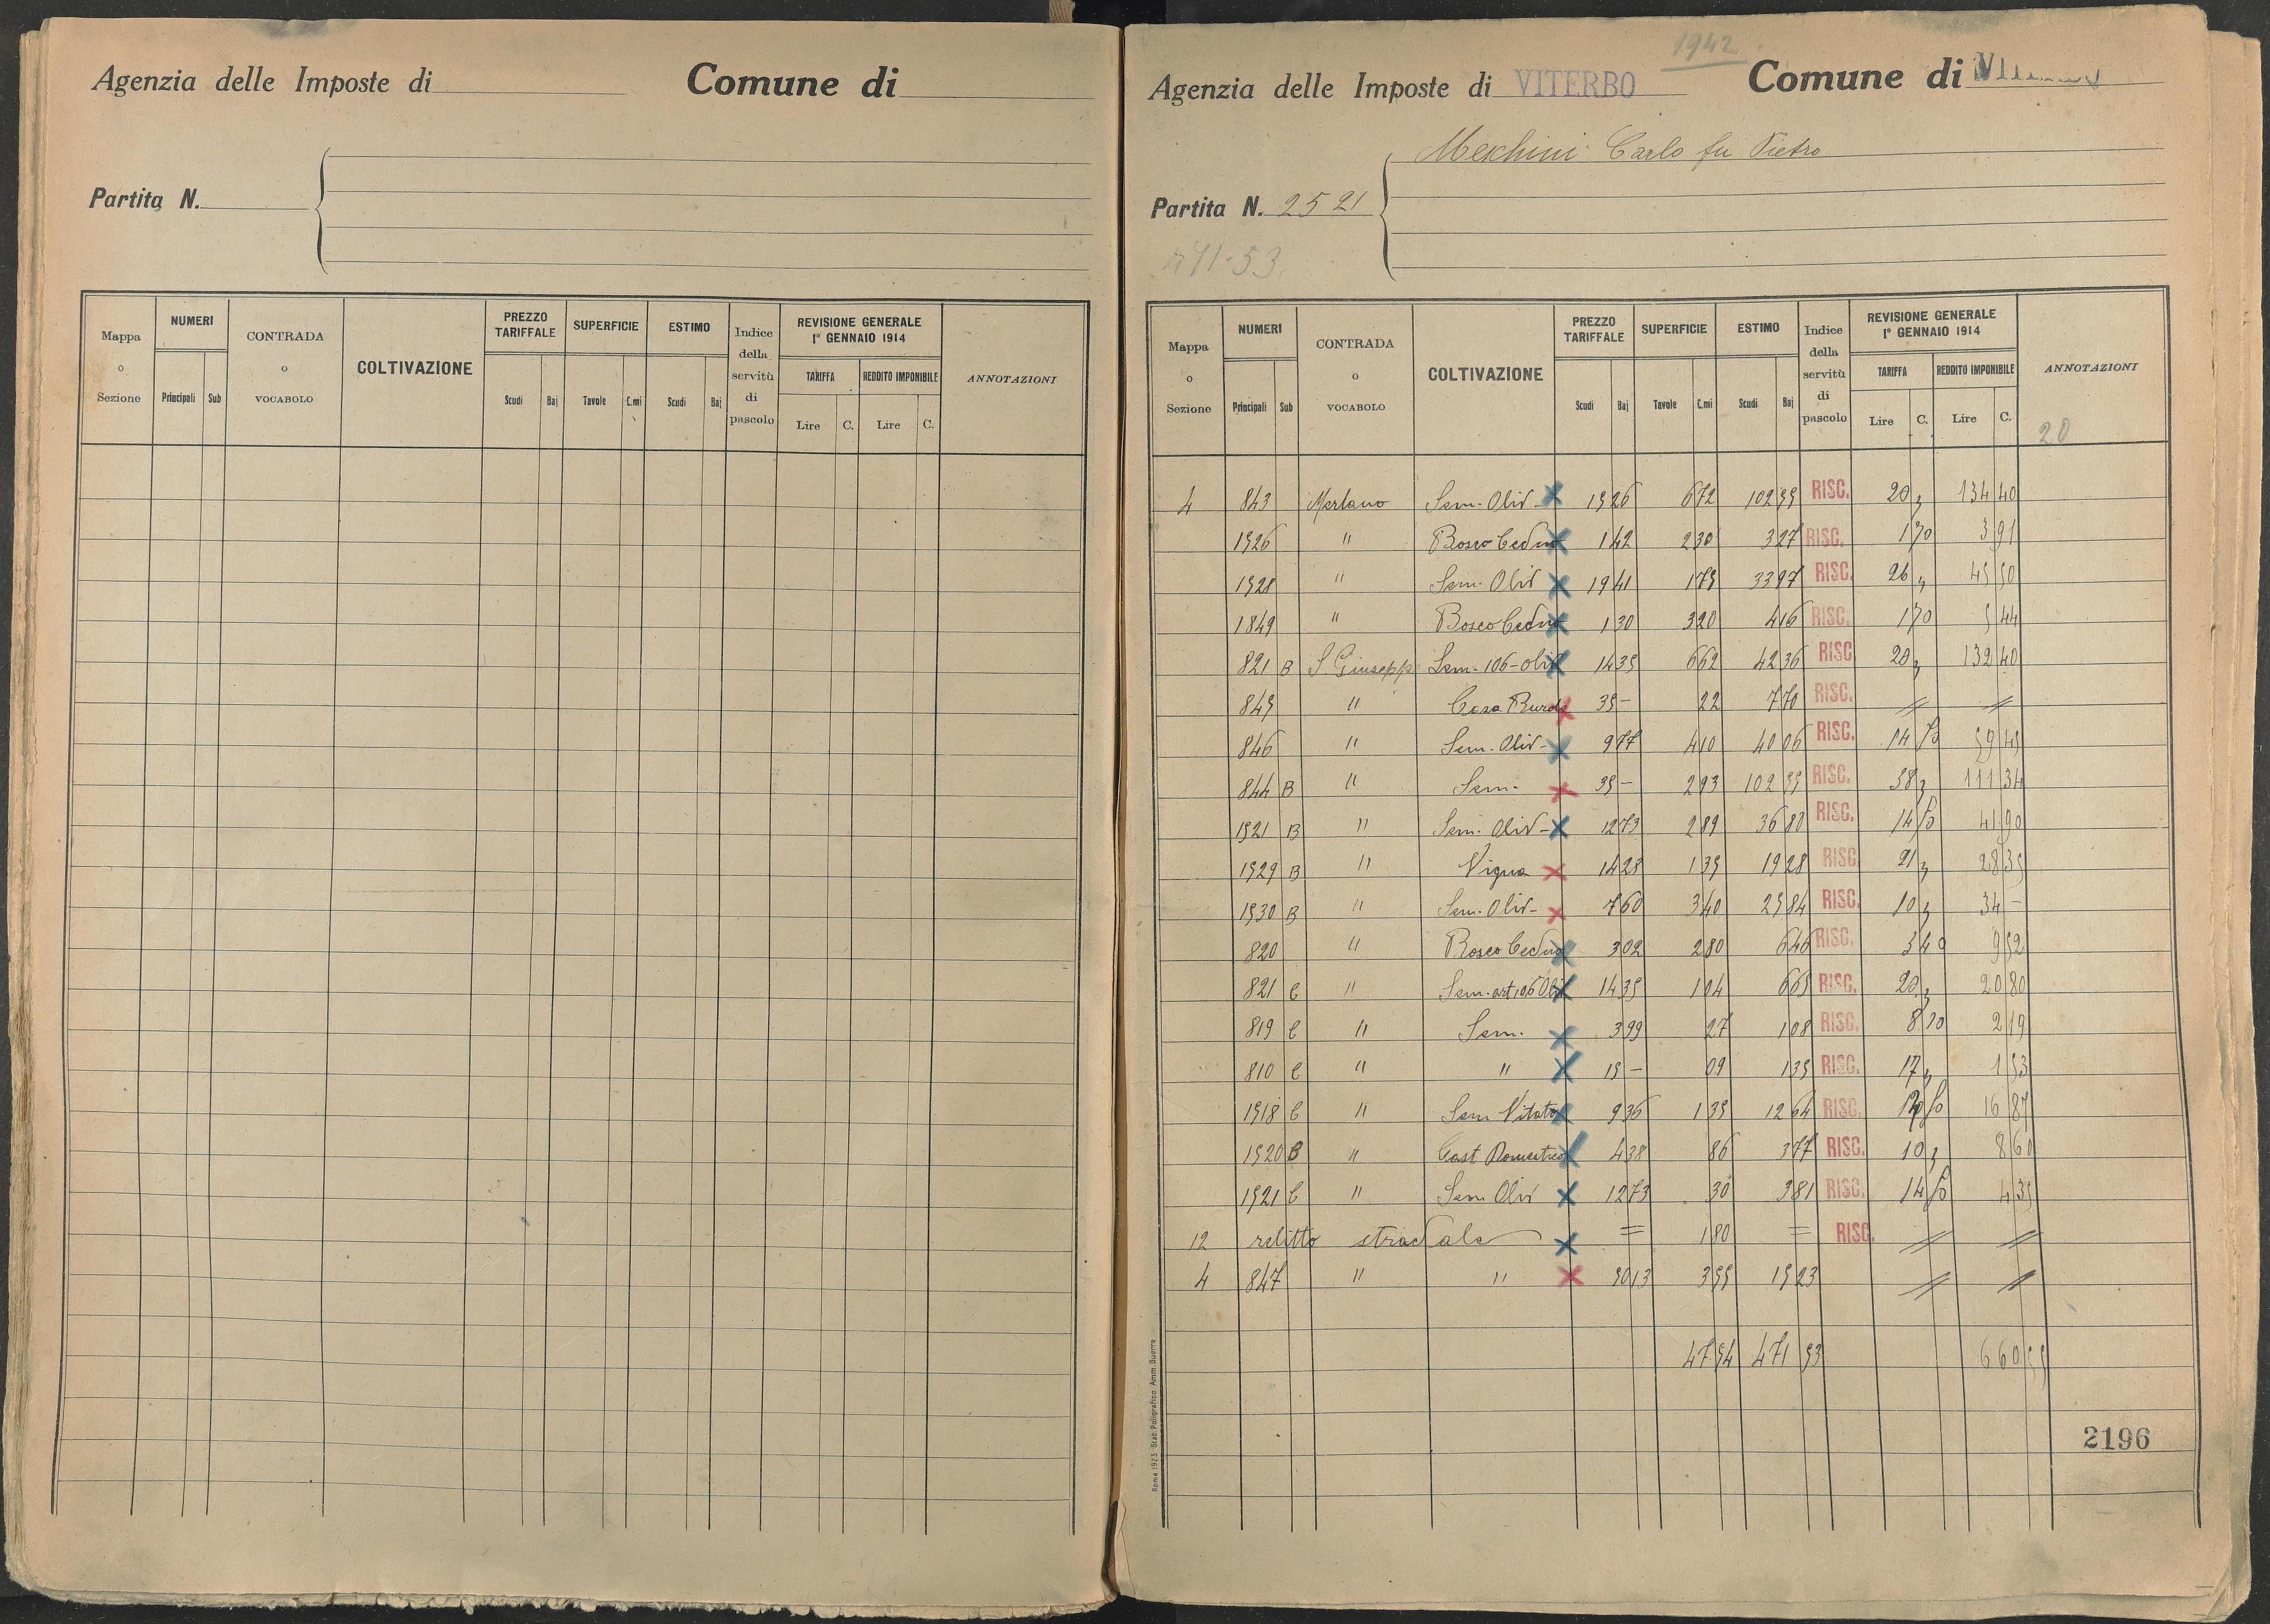 Agenzia delle Imposte di Comune di
Partita N.
Mappa o Sezione NUMERI Principali Sub CONTRADA o VOCABOLO COLTIVAZIONE PREZZO TARIFFALE Scudi Baj SUPERFICIE Tavole C.mi ESTIMO Scudi Baj Indice della servitù di pascolo REVISIONE GENERALE 1° GENNAIO 1914 TARIFFA Lire C. REDDITO IMPONIBILE Lire C. ANNOTAZIONI
1942
Agenzia delle Imposte di VITERBO Comune di
Carlo fu Pietro
Partita N. 2521
471-53
Mappa o Sezione NUMERI Principali Sub CONTRADA o VOCABOLO COLTIVAZIONE PREZZO TARIFFALE Scudi Baj SUPERFICIE Tavole C.mi ESTIMO Scudi Baj Indice della servitù di pascolo REVISIONE GENERALE 1° GENNAIO 1914 TARIFFA Lire C. REDDITO IMPONIBILE Lire C. ANNOTAZIONI
20
4 843 Merlano Sem. Oliv X 15 26 6 72 102 55 RISC. 20 , 134 40
1526 " Bosco Ceduo X 1 42 2 30 3 27 RISC. 1 70 3 91
" Sem. Oliv X 19 41 1 75 33 97 RISC. 26 , 45 50
1849 " Bosco Ceduo X 1 30 3 20 4 16 RISC. 1 70 5 44
821 B S. Giusepp Sem. 106-oliv X 14 35 6 62 42 36 RISC 20 , 132 40
845 " Casa Rurale X 35 - 22 7 70 RISC. // //
846 " Sem. Oliv- X 9 77 4 10 40 06 RISC. 14 50 59 45
844 B " Sem. X 35 - 2 93 102 55 RISC. 38 , 111 34
1521 B " Sem. Oliv- X 12 73 2 89 36 80 RISC. 14 50 41 90
1529 B " Vigna X 14 28 1 35 19 28 RISC 21 , 28 35
1530 B " Sem. Oliv- X 7 60 3 40 25 84 RISC. 10 , 34 -
820 " Bosco Ceduo X 3 02 2 80 6 46 RISC. 3 40 9 52
821 C " Sem. art 106 Oliv X 14 35 1 04 6 65 RISC. 20 , 20 80
819 C " Sem. X 3 99 27 1 08 RISC. 8 10 2 19
810 C " " X 15 - 09 1 35 RISC. 17 , 1 53
1518 C " Sem Vitato X 9 36 1 35 12 64 RISC. 50 16 87
1520 B " Cast Domestico X 4 38 86 3 77 RISC. 10 , 8 60
1521 C " Sem Oliv X 12 73 30 3 81 RISC. 14 50 4 35
12 relitto stradale X = 1 80 = RISC. // //
4 847 " " X 3 55 15 23 // //
47 54 471 53 660 55
2196
Roma 1923 Stab. Poligrafico Amm. Guerra